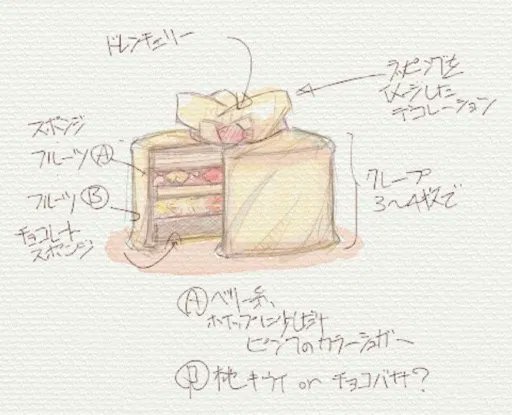 ドレンチェリー
ラッピングを
イメージした
デコレーション
スポンジ
フルーツ Ⓐ
フルーツ Ⓑ
チョコレート
スポンジ
クレープ
3〜4枚で
Ⓐ ベリー系、
ホイップに少しだけ
ピンクのカラーシュガー
Ⓑ 桃キウイ or チョコバナナ?